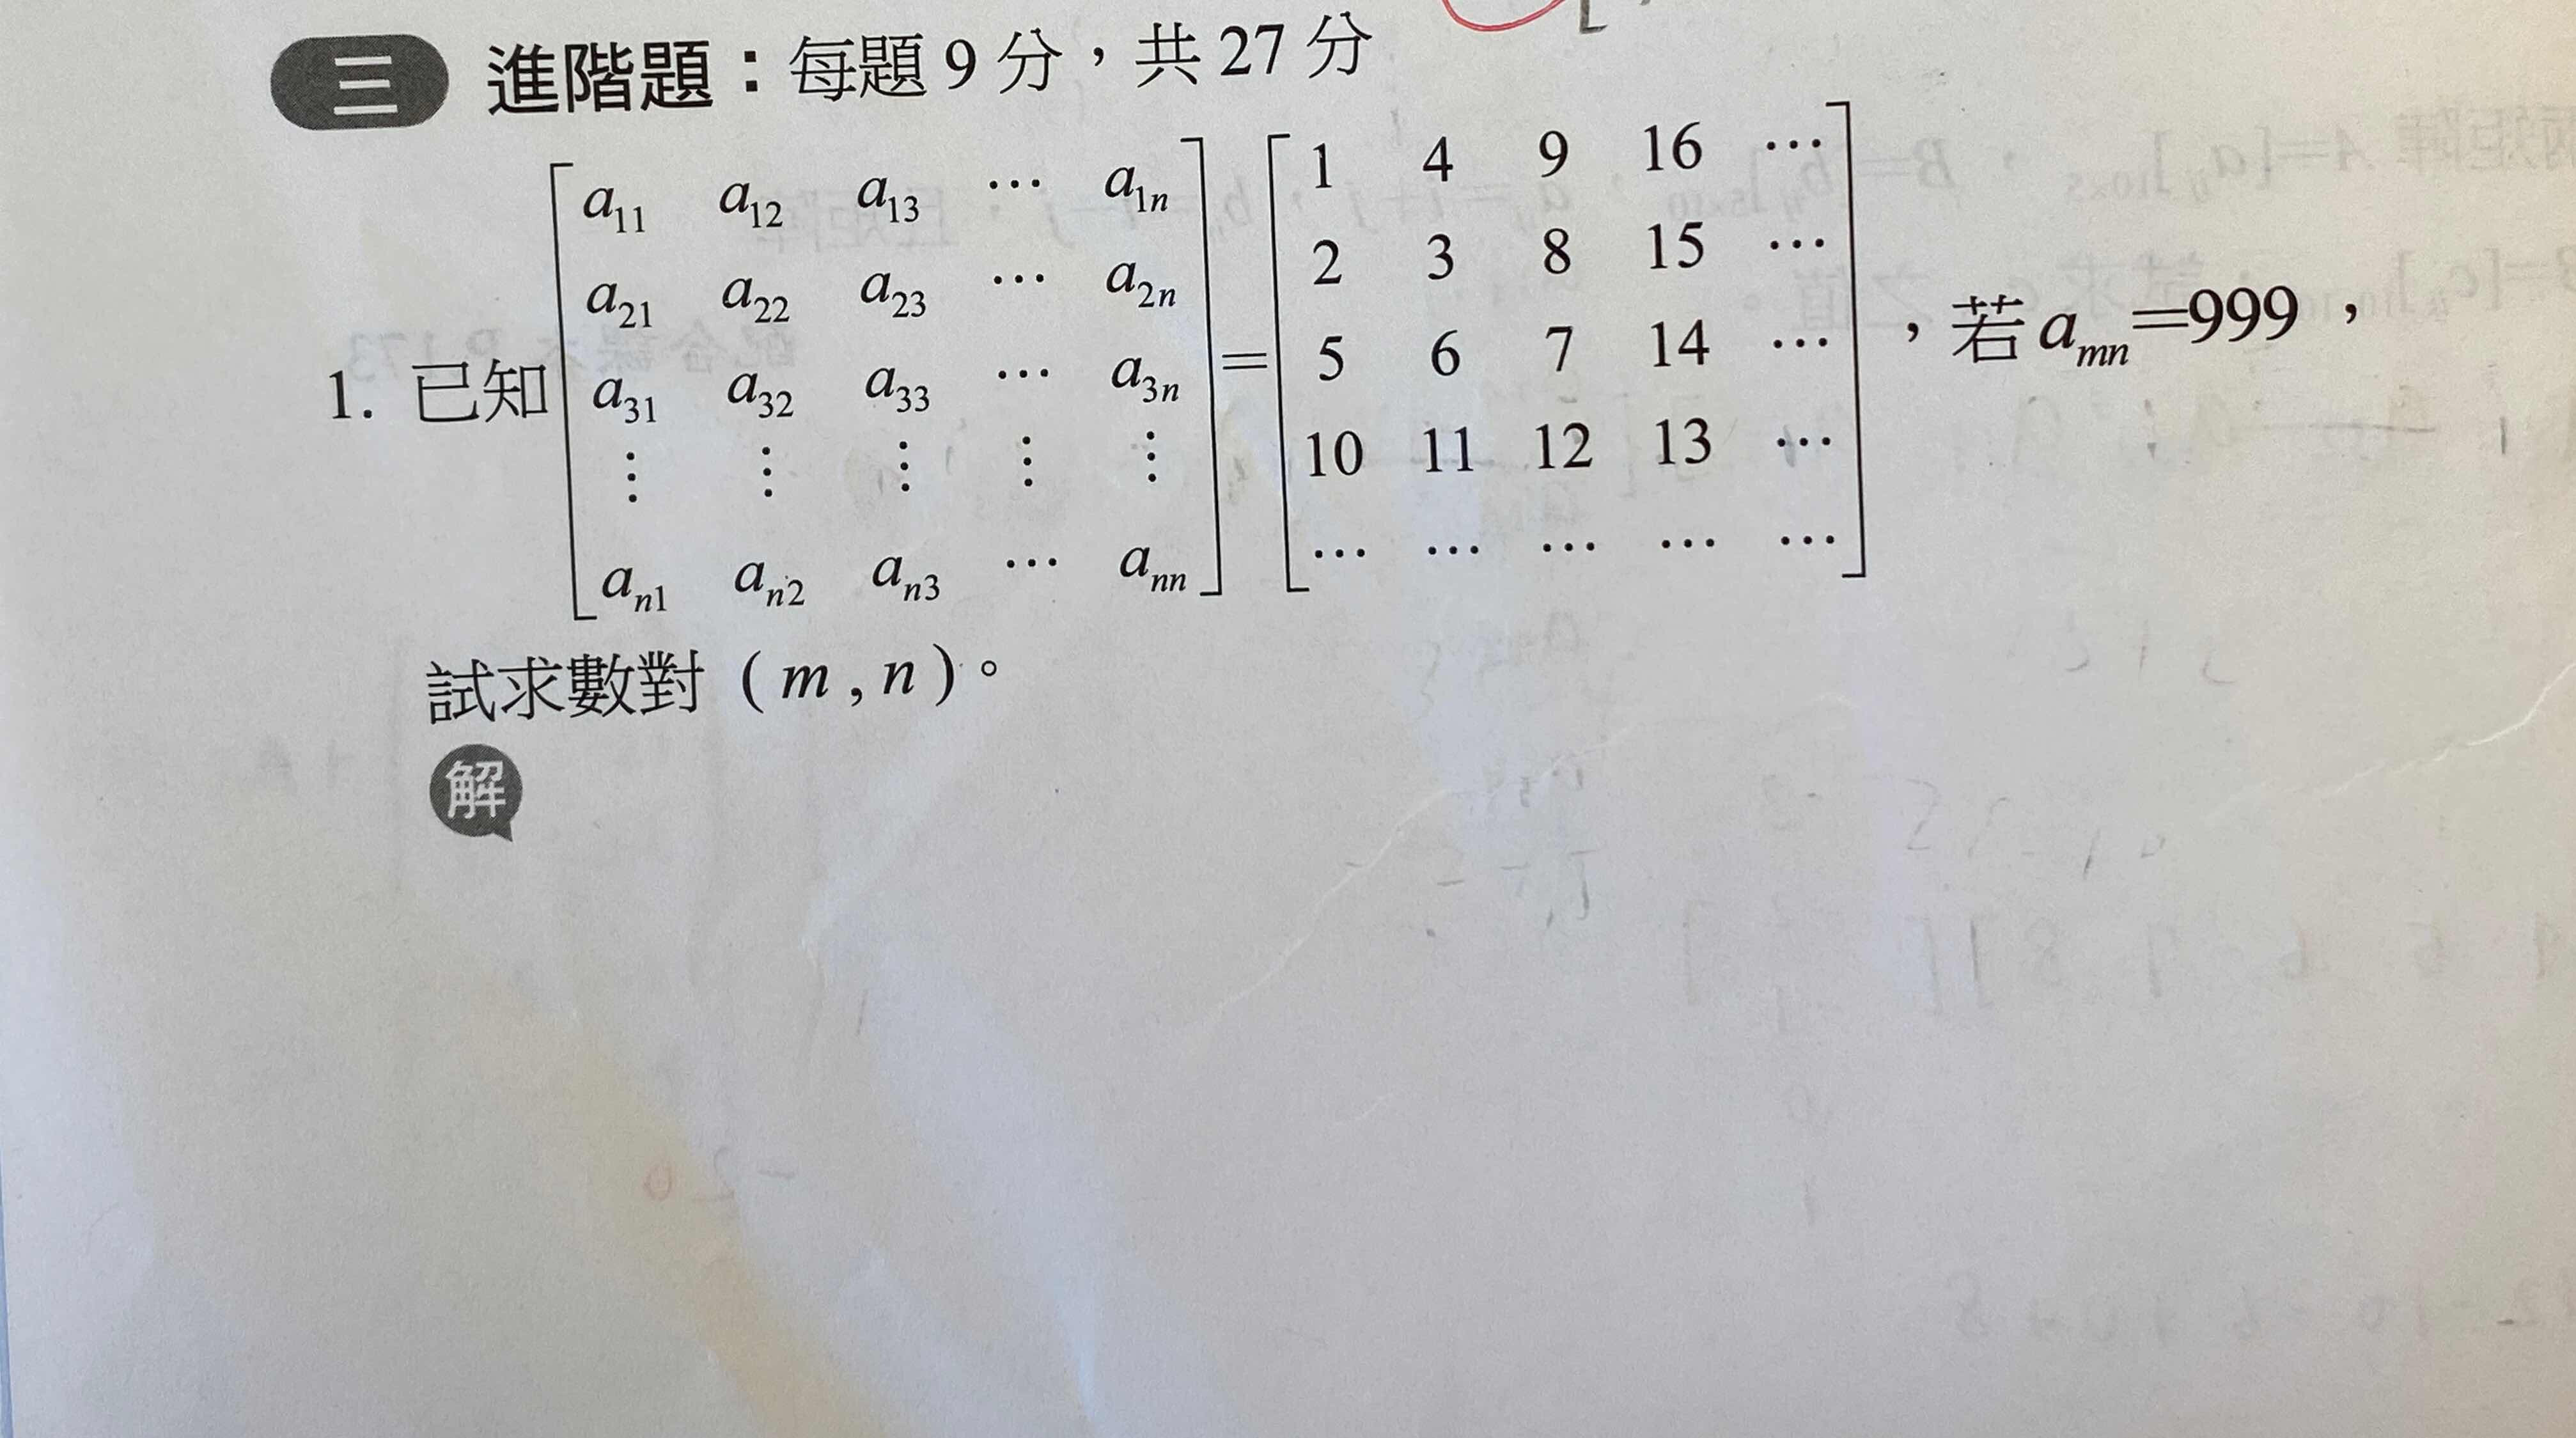 三 進階題：每題 9 分，共 27 分
1. 已知 [ a11 a12 a13 ⋯ a1n
a21 a22 a23 ⋯ a2n
a31 a32 a33 ⋯ a3n
⋮ ⋮ ⋮ ⋮ ⋮
an1 an2 an3 ⋯ ann ] = [ 1 4 9 16 ⋯
2 3 8 15 ⋯
5 6 7 14 ⋯
10 11 12 13 ⋯
⋯ ⋯ ⋯ ⋯ ⋯ ] ，若 amn=999，
試求數對（m , n）。
解